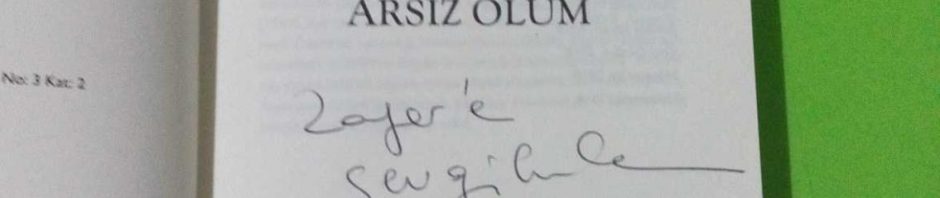 ARSIZ ÖLÜM
No: 3 Kat: 2
Zafer'e
sevgilerle